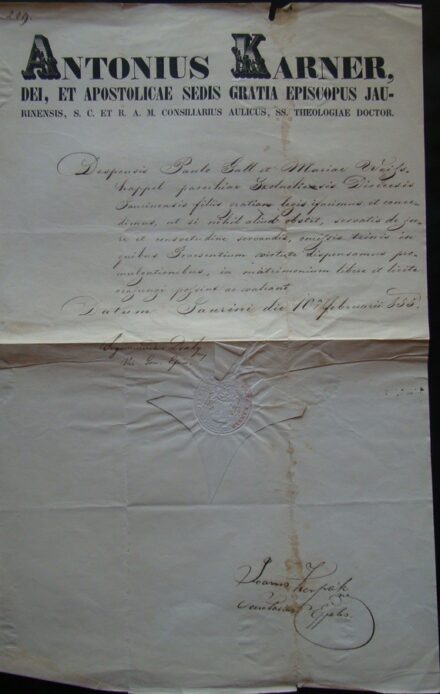 219.
ANTONIUS KARNER,
DEI, ET APOSTOLICAE SEDIS GRATIA EPISCOPUS JAU-
RINENSIS, S. C. ET R. A. M. CONSILIARIUS AULICUS, SS. THEOLOGIAE DOCTOR.
Desponsis Paulo Gall et Mariae
happel parochiae Dioecesis
Jauriensis filiis gratiam legis facimus et conce
dimus, ut si nihil aliud obstet, servatis de ju
re et consuetudine servandis, omissis trinis in
quibus Praesentium virtute dispensamus pro
mulgationibus, in matrimonium libere et licite
conjungi possint ac valeant.
Datum Jaurini die 10a Februarii 855.
Vic. Gen.
Joannes
Secretarius Eppalis